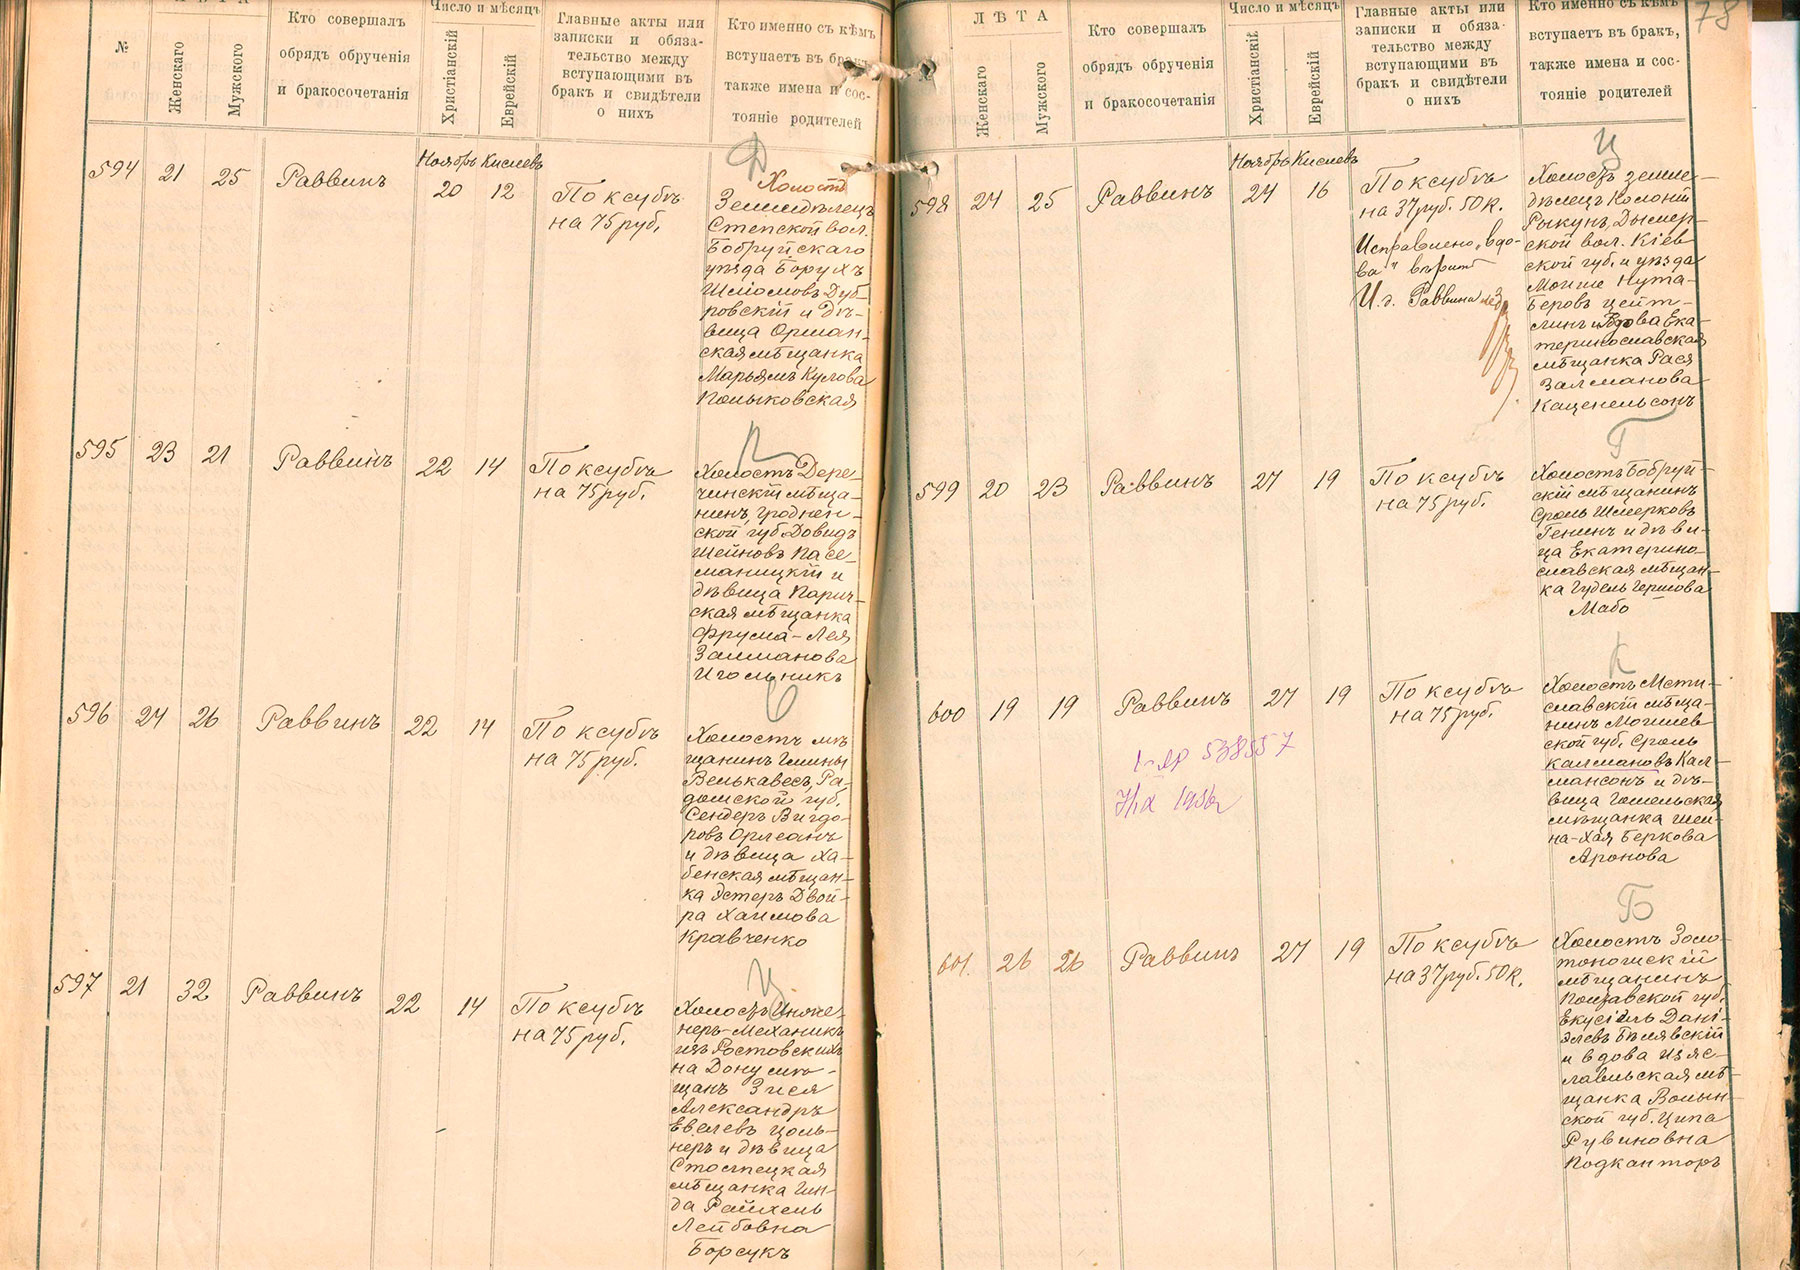 ЛѢТА
Число и мѣсяцъ
№
Женскаго
Мужского
Кто совершалъ
обрядъ обрученія
и бракосочетанія
Христіанскій
Еврейскій
Главные акты или
записки и обяза-
тельство между
вступающими въ
бракъ и свидѣтели
о нихъ
Кто именно съ кѣмъ
вступаетъ въ бракъ,
также имена и сос-
тояніе родителей
Д
594 21 25 Раввинъ
Ноябрь Кислевъ
20 12
По ксубѣ
на 75 руб.
Холостъ
Земледѣлецъ
Степской вол.
Бобруйскаго
уѣзда Борухъ
Шліомовъ Дуб-
ровскій и дѣ-
вица Оршан-
ская мѣщанка
Марьямъ Кулова
Полыковская
П
595 23 21 Раввинъ 22 14
По ксубѣ
на 75 руб.
Холостъ Дере-
чинскій мѣща-
нинъ, Гроднен-
ской губ. Довидъ
Шейновъ Пасе-
маницкій и
дѣвица Парич-
ская мѣщанка
Фрума-Лея
Залманова
Игольникъ
О
596 24 26 Раввинъ 22 14
По ксубѣ
на 75 руб.
Холостъ мѣ-
щанинъ Гмины
Велькавесъ, Ра-
домской губ.
Сендеръ Вигдо-
ровъ Орлеанъ
и дѣвица Ха-
бенская мѣщан-
ка Эстеръ Двой-
ра Хаимова
Кравченко
Ц
597 21 32 Раввинъ 22 14
По ксубѣ
на 75 руб.
Холостъ Инже-
неръ-Механикъ
изъ Ростовскихъ
на Дону мѣ-
щанъ Зися
Александръ
Евелевъ Цоль-
неръ и дѣвица
Столпецкая
мѣщанка Гин-
да Райхель
Лейбовна
Борсукъ
78
ЛѢТА
Число и мѣсяцъ
Женскаго
Мужского
Кто совершалъ
обрядъ обрученія
и бракосочетанія
Христіанскій
Еврейскій
Главные акты или
записки и обяза-
тельство между
вступающими въ
бракъ и свидѣтели
о нихъ
Кто именно съ кѣмъ
вступаетъ въ бракъ,
также имена и сос-
тояніе родителей
Ц
598 24 25 Раввинъ
Ноябрь Кислевъ
24 16
По ксубѣ
на 37 руб. 50 к.
Исправлено „вдо-
ва" вѣрить
И. д. Раввина
Холостъ земле-
дѣлецъ Колоніи
Рыкунъ, Дымер-
ской вол. Кіев-
ской губ. и уѣзда
Моише Нута-
Беровъ Цейт-
линъ и Вдова Ека-
теринославская
мѣщанка Рася
Залманова
Каценельсонъ
Г
599 20 23 Раввинъ 27 19
По ксубѣ
на 75 руб.
Холостъ Бобруй-
скій мѣщанинъ
Сроль Шмерковъ
Генинъ и дѣви-
ца Екатерино-
славская мѣщан-
ка Гудель Гершова
Мабо
К
600 19 19 Раввинъ 27 19
По ксубѣ
на 75 руб.
538557
Холостъ Мсти-
славскій мѣща-
нинъ Могилев-
ской губ. Сроль
Калмановъ Кал-
мансонъ и дѣ-
вица Гомельская
мѣщанка Шей-
на-Хая Беркова
Аронова
Б
601. 26 26 Раввинъ 27 19
По ксубѣ
на 37 руб. 50 к.
Холостъ Золо-
тоношскій
мѣщанинъ
Полтавской губ.
Екусіилъ Дані-
елевъ Бѣлявскій
и вдова Изяс-
лавльская мѣ-
щанка Волын-
ской губ. Ципа
Рувиновна
Подканторъ